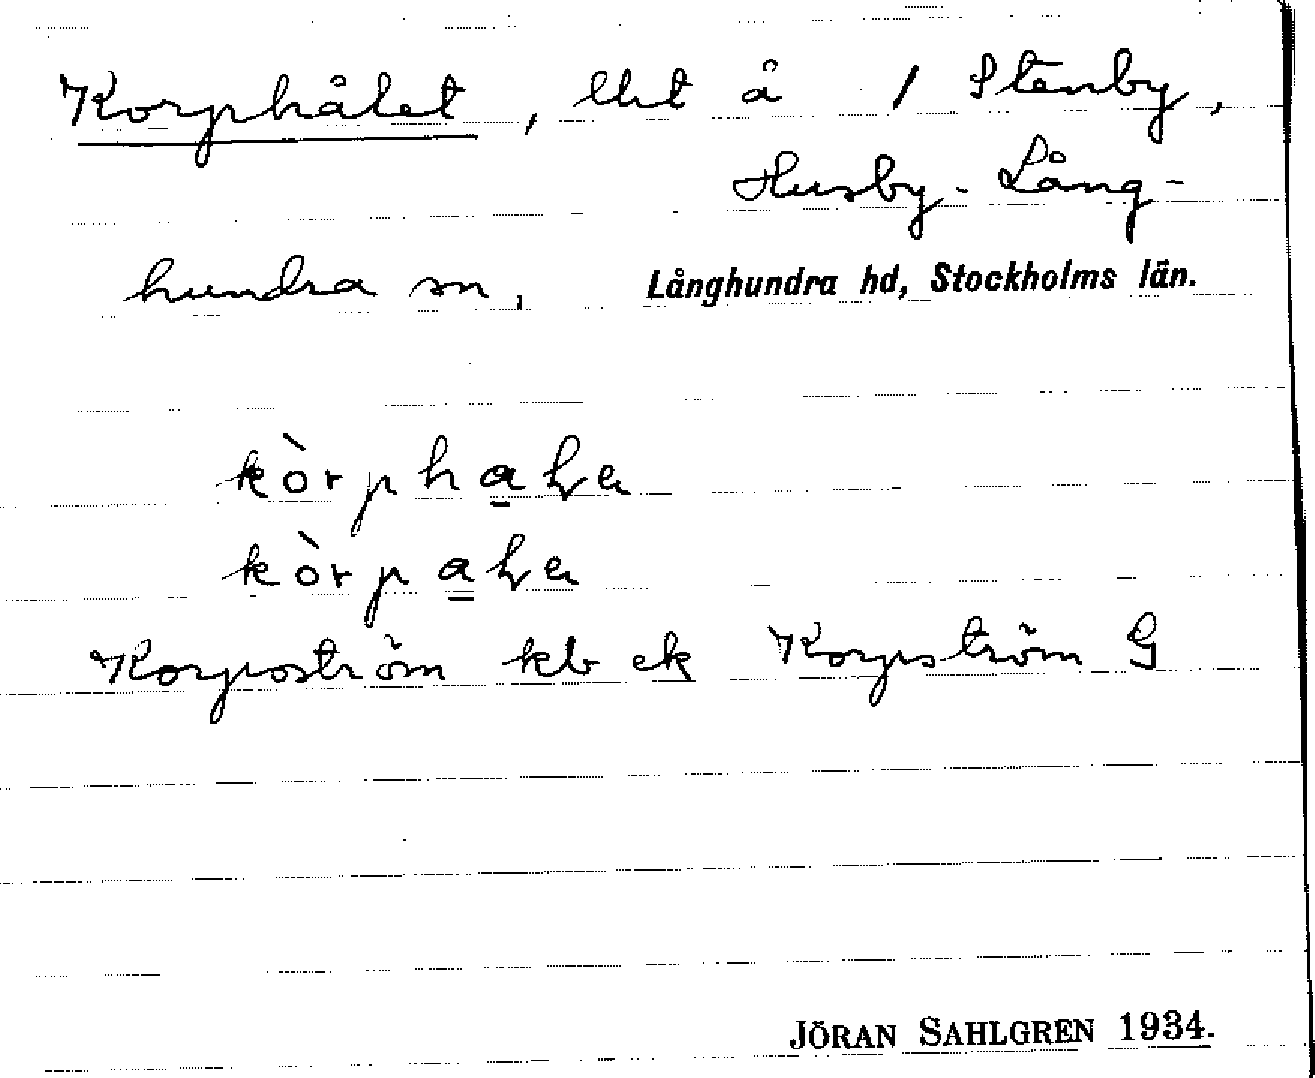 Korphålet, lht å / Stenby,
Husby-Lång-
hundra sn, Långhundra hd, Stockholms län.
kòrphaļe
kòrpaļe
Korpoström kb ek Korpström G
JÖRAN SAHLGREN 1934.